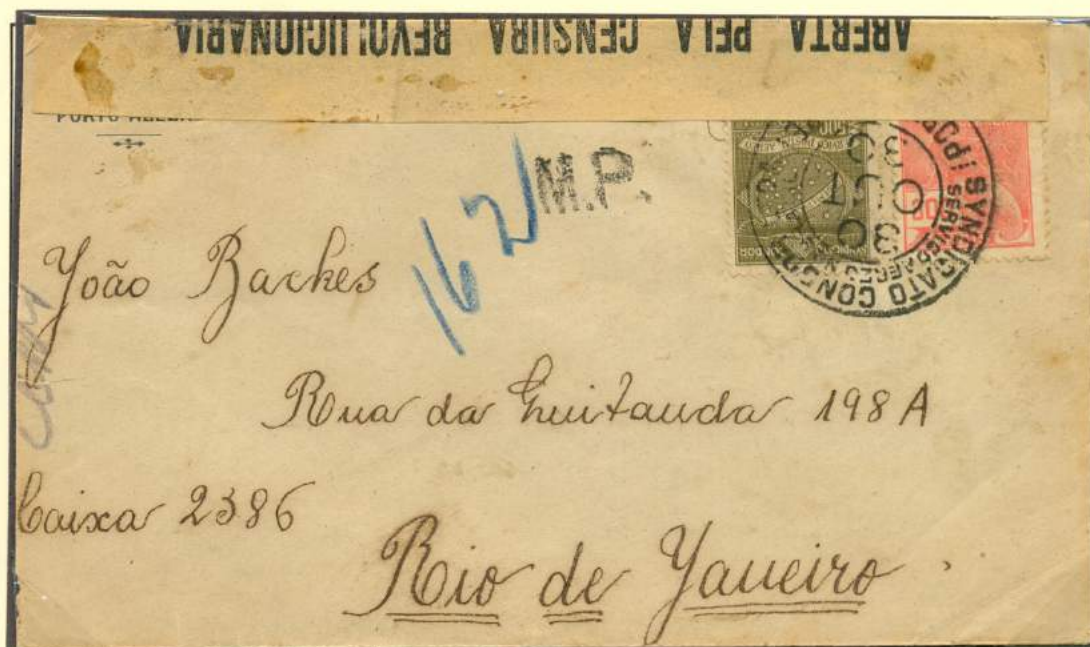 ABERTA PELA CENSURA REVOLUCIONARIA
PORTO ALEGRE
M.P.
162
SYNDICATO CONDOR
SERVIÇO AEREO
30
OCT
30
João Backes
Rua da Quitanda 198 A
Caixa 2386
Rio de Janeiro